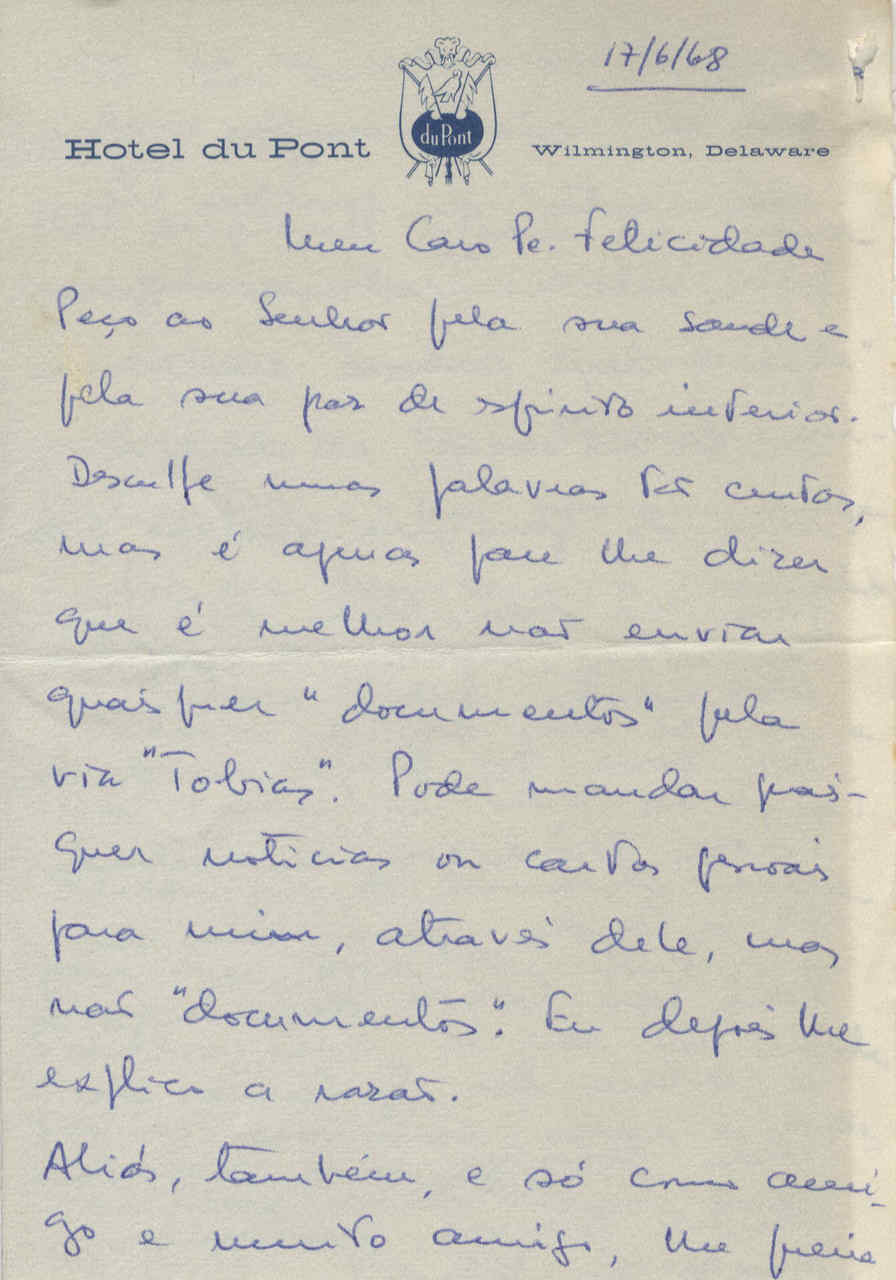 17/6/68
Hotel du Pont
du Pont
Wilmington, Delaware
Meu Caro Pe. Felicidade
Peço ao Senhor pela sua saude e
pela sua paz de espirito interior.
Desculpe umas palavras tão curtas,
mas é apenas para lhe dizer
que é melhor não enviar
quaisquer "documentos" pela
via "Tobias". Pode mandar quais-
quer noticias ou cartas pessoais
para mim, através dele, mas
não "documentos". Eu depois lhe
explico a razão.
Aliás, também, e só como ami-
go e muito amigo, lhe queria